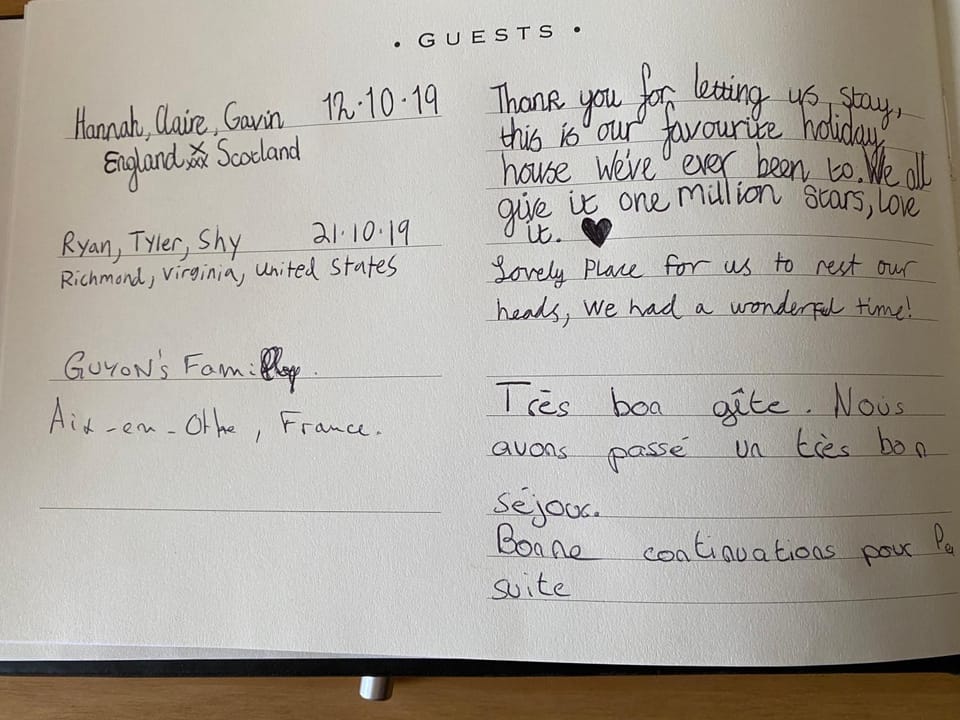 • GUESTS •
Hannah, Claire, Gavin 12·10·19
England xxx Scotland
Thank you for letting us stay,
this is our favourite holiday
house we've ever been to. We all
give it one million stars, love
it. ♥
Ryan, Tyler, Shy 21·10·19
Richmond, Virginia, United States
Lovely Place for us to rest our
heads, we had a wonderful time!
GUYON's Family.
Aix-en-Othe, France.
Très bon gîte. Nous
avons passé un très bon
séjour.
Bonne continuations pour la
suite